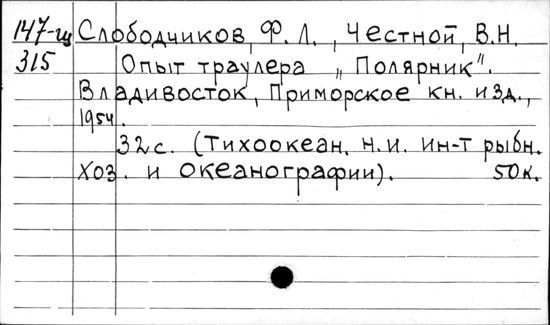 147-щ Слободчиков, Ф. Л., Честной, В.Н.
315 Опыт траулера „Полярник".
Владивосток, Приморское кн. изд.,
1954.
32 с. (Тихоокеан. н.и. ин-т рыбн.
хоз. и океанографии). 50к.